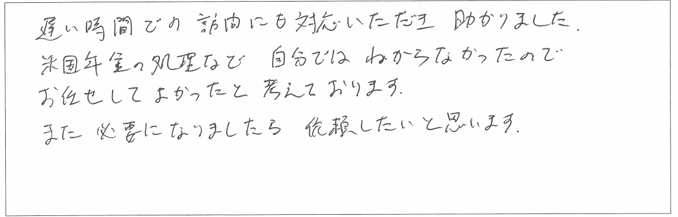 遅い時間での訪問にも対応いただき 助かりました.
米国年金の処理など 自分では わからなかったので
お任せしてよかったと 考えております.
また 必要になりましたら 依頼したいと思います.